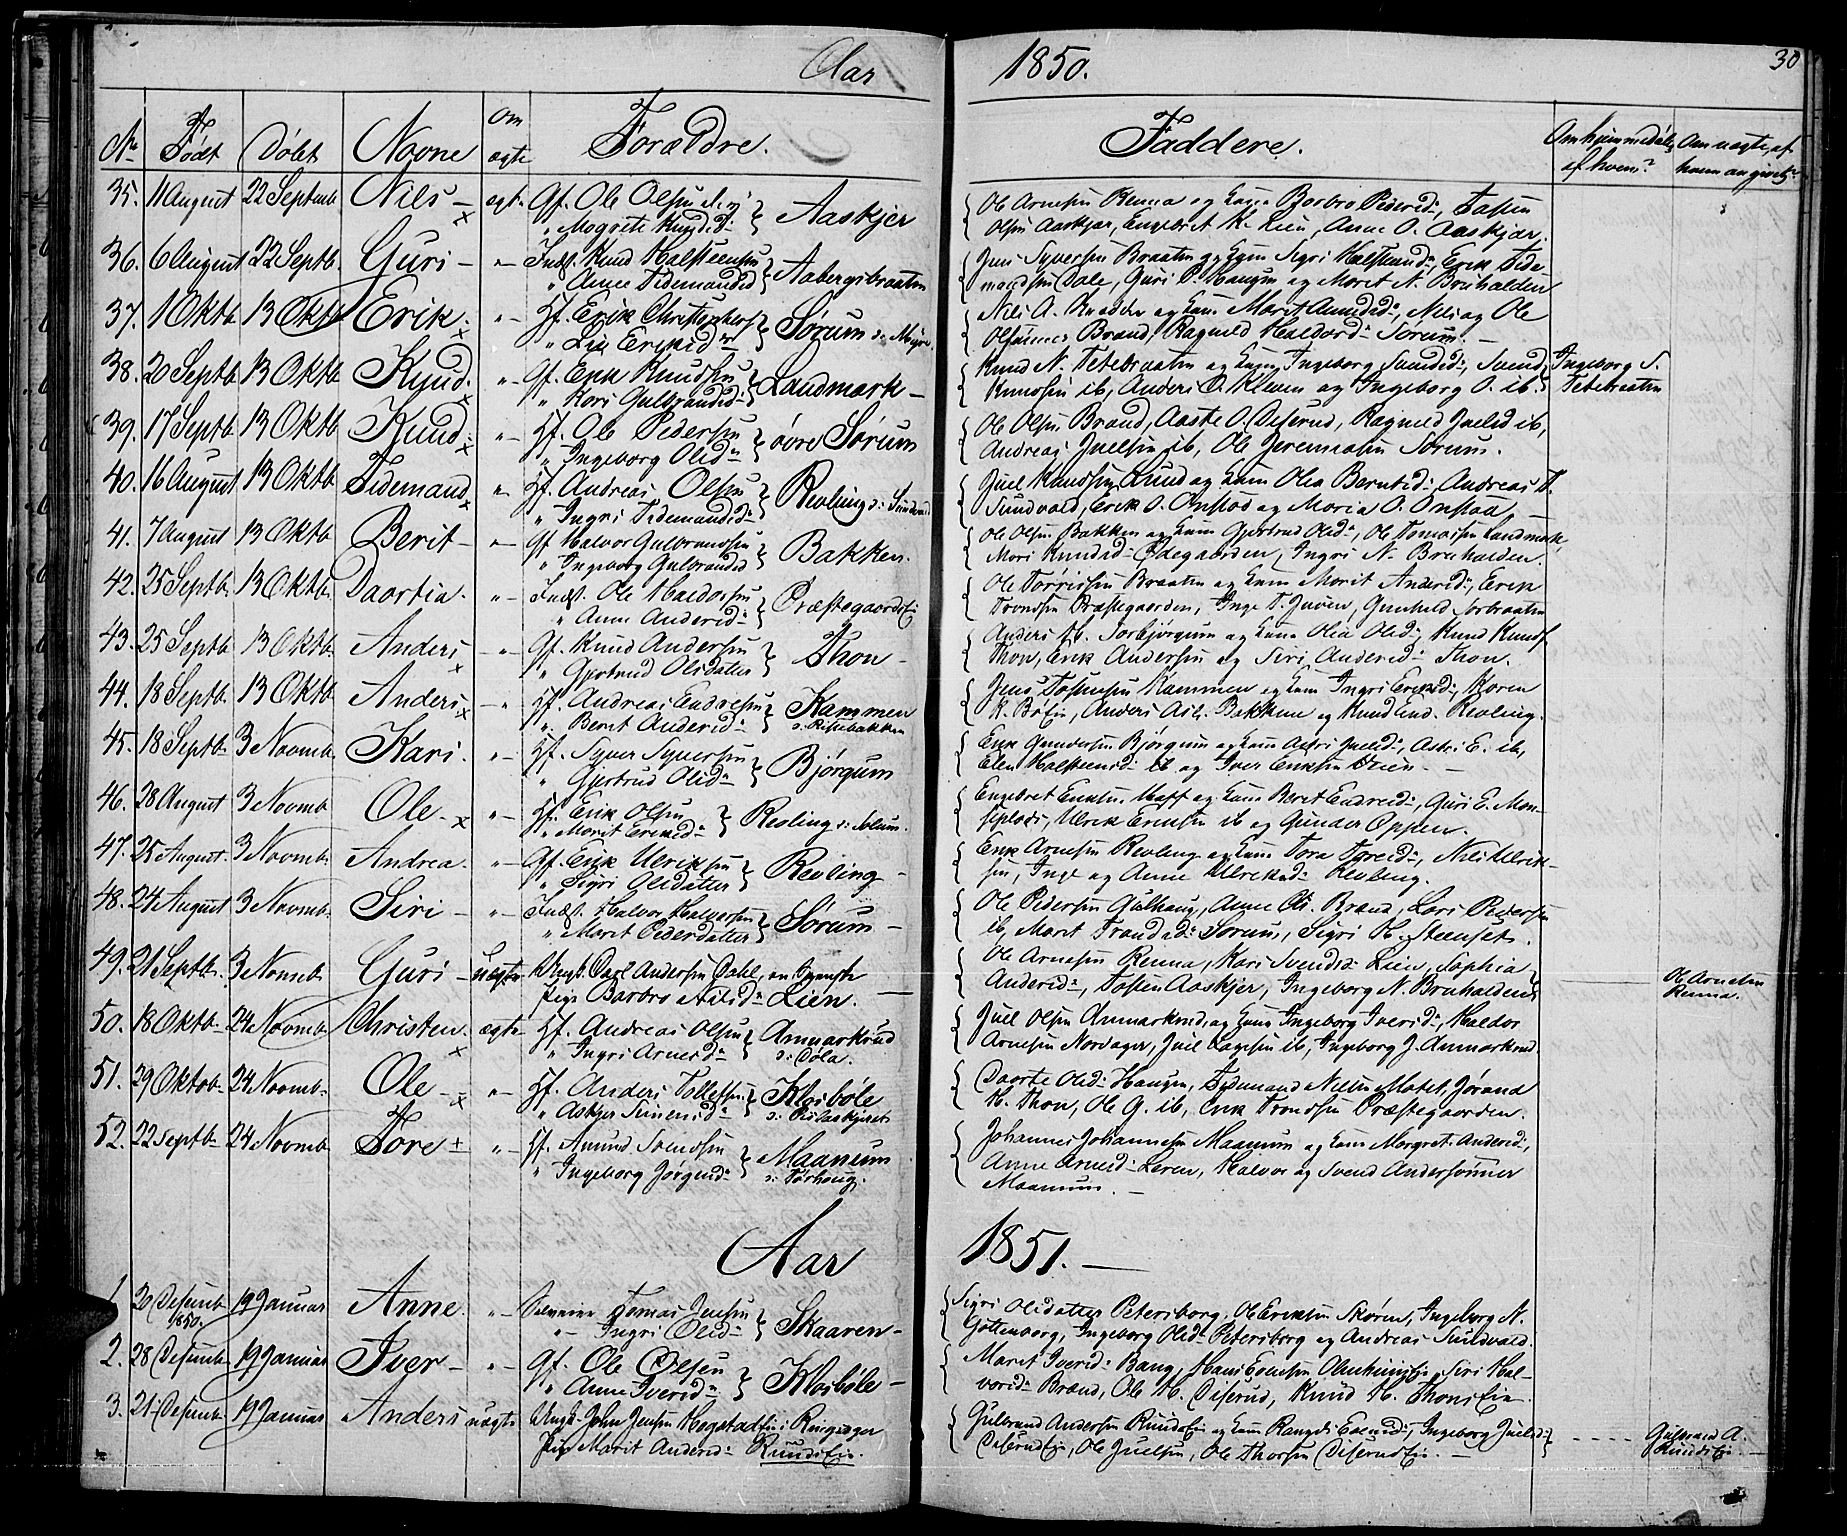 Aar 1850. 30
No Født Døbt Navne Om ægte Forældre. Faddere. Om hjemmedøbt, af hvem? Om uægte, af hvem angivet?
35. 11 August 22 Septemb. Nils ægt. Gf. Ole Olsen
Magrete Knudsd. Aaskjer
Ole Arnesen Renna og Kone Barbro Pedersd., Tosten
Olsen Aaskjær, Engebret K. Lien, Anne O. Aaskjær.
36. 6 August 22 Septb. Guri - " - Indst. Knud Halsteensen
" Anne Tidemandsd. Aabergsbraaten
Jens Syversen Braaten og Kone Sigri Halsteensd., Erik Tide-
mandsen Dale, Guri P. Haugen og Marit N. Bruhalden
37. 1 Oktb. 13 Oktb. Erik " - Hf. Erik Christophers.
" Lie Eriksd. Sørum
Nils A. og Kone Marit Amundsd., Nils og Ole
Olsønner Brand, Ragnild Haldorsd. Sørum. -
38. 20 Septb. 13 Oktb. Knud. " - Gf. Erik Knudsen
" Kari Gulbrandsd. Landmark -
Knud N. Tetebraaten og Kone Ingeborg Svendsd., Svend
Knudsen ib, Anders O. Kleven og Ingeborg O. ib.
Ingeborg S.
Tetebraaten
39. 17 Septb. 13 Oktb. Knud " - Hf. Ole Pedersen
" Ingeborg Olsd. øvre Sørum
Ole Olsen Brand, Aaste O. Diserud, Ragnild Juelsd. ib,
Andreas Juelsen ib, Ole Jeremiasen Sørum.
40. 16 August 13 Oktb. Tidemand " - Hf. Andreas Olsen
" Ingri Tidemandsd. Revling
Juel Knudsen Rund og Kone Olea Berntsd., Andreas T.
Sundvold, Erik O. Onstad og Maria O. Onstad, -
41. 7 August 13 Oktb. Berit - " - Gf. Halvor Gulbrandsen
" Ingeborg Gulbrandsd. Bakken.
Ole Olsen Bakken og Kone Gjertrud Olsd., Ole Tomassen Landmark,
Mari Knudsd. Ødegaarden, Ingri N. Bruhalden.
42. 25 Septb. 13 Oktb. Daartia. " - Indst. Ole Haldorsen
" Anne Andersd. Præstegaardsei
Ole Torrissen Braaten og Kone Marit Andersd., Erik
Trondsen Præstegaarden, Inge T. Juven, Gunhild Torbraaten
43. 25 Septb. 13 Oktb. Anders - " Gf. Knud Andersen
" Gjertrud Olsdatter Thon -
Anders H. Torbjørgum og Kone Olia Olsd., Knud Knuds.
Thon, Erik Andersen og Siri Andersd. Thon.
44. 18 Septb. 13 Oktb. Anders - " Hf. Andreas Endresen
" Berit Andersd. Kammen
Jens Tostensen Kammen og Kone Ingri Eriksd., Karen
K. Bøei, Anders Asl. Bakkene og Knud End. Revling.
45. 18 Septb. 3 Novmb. Kari. " - Hf. Syver Syversen
" Gjertrud Olsd. Bjørgum
Erik Gundersen Bjørgum og Kone Astri Juelsd., Astri E. ib,
Elen Halsteensd. ib og Iver Eriksen Veien. -
46. 28 August 3 Novmb. Ole - " - Hf. Erik Olsen
" Marit Eriksd. Revling
Engebret Eriksen Moff og Kone Beret Endresd., Guri E. Mon-
seplads, Ulrik Eriksen ib og Gunder Oppen.
47. 25 August 3 Novmb. Andrea. " - Gf. Erik Ulriksen
" Sigri Olsdatter Revling -
Erik Arnesen Revling og Kone Tora Toresd., Nils Ulrik-
sen, Inge og Anne Ulriksd. Revling.
48. 24 August 3 Novmb. Siri - " - Indst. Halvor Halvorsen
" Marit Pedersdatter Sørum -
Ole Pedersen Gulhaug, Anne Chr. Brand, Lars Pedersen
ib, Marit Trondsd. Sørum, Sigri H. Steenset.
49. 21 Septb. 3 Novmb. Guri - uægte Ungk. Carl Andersen Dahl, en Svenske
Pige Barbro Nilsd. Lien. -
Ole Arnesen Renna, Kari Svendsd. Lien, Sophia
Andersd., Tosten Aaskjer, Ingeborg N. Bruhalden
Ole Arnesen
Renna.
50. 18 Oktb. 24 Novmb. Christen. ægte Hf. Andreas Olsen
" Ingri Arnesd. Anmarkrud
Juel Olsen Anmarkrud og Kone Ingeborg Iversd., Haldor
Arnesen Nordager, Juel Aagesen ib, Ingeborg J. Anmarkrud.
51. 29 Oktob. 24 Novmb. Ole " - Hf. Anders Tollefsen
" Askjer Simensd. Klosbøle
Daarte Olsd. Haugen, Tidemand Nilsen Mael, Jørand
H. Thon, Ole G. ib, Erik Trondsen Præstegaarden.
52. 22 Septb. 24 Novmb. Tore " - Hf. Amund Svendsen
" Ingeborg Jørgensd. Maanum
Johannes Johannesen Maanum og Kone Margret Andersd.,
Anne Arnesd. Leren, Halvor og Svend Andersønner
Maanum. -
Aar 1851. -
1. 20 Desemb. 1850. 19 Januar Anne. " - Tomas Jensen
" - Ingri Olsd. Skaaren -
Sigri Olsdatter Petersborg, Ole Eriksen Skøren, Ingeborg N.
Gøttenborg, Ingeborg Olsd. Petersborg og Andreas Sundvold.
2. 28 Desemb. 19 Januar Iver - " - Gf. Ole Olsen
" Anne Iversd. Klosbøle -
Marit Iversd. Bang, Hans Ericksen, Siri Hal-
vorsd. Brænd, Ole H. Diserud, Knud H. Thonsein.
3. 21 Desemb. 19 Januar Anders uægte Ungk. John Jensen Hogstadei i Ringsager
Pige Marit Andersd. Rundsein.
Gulbrand Andersen Rundsei og Kone Rangdi Evensd., Ingeborg Juelsd.
Diserudei, Ole Juelsen, Ole Thorsen Diserudei. -
Gulbrand A.
Rundsei -